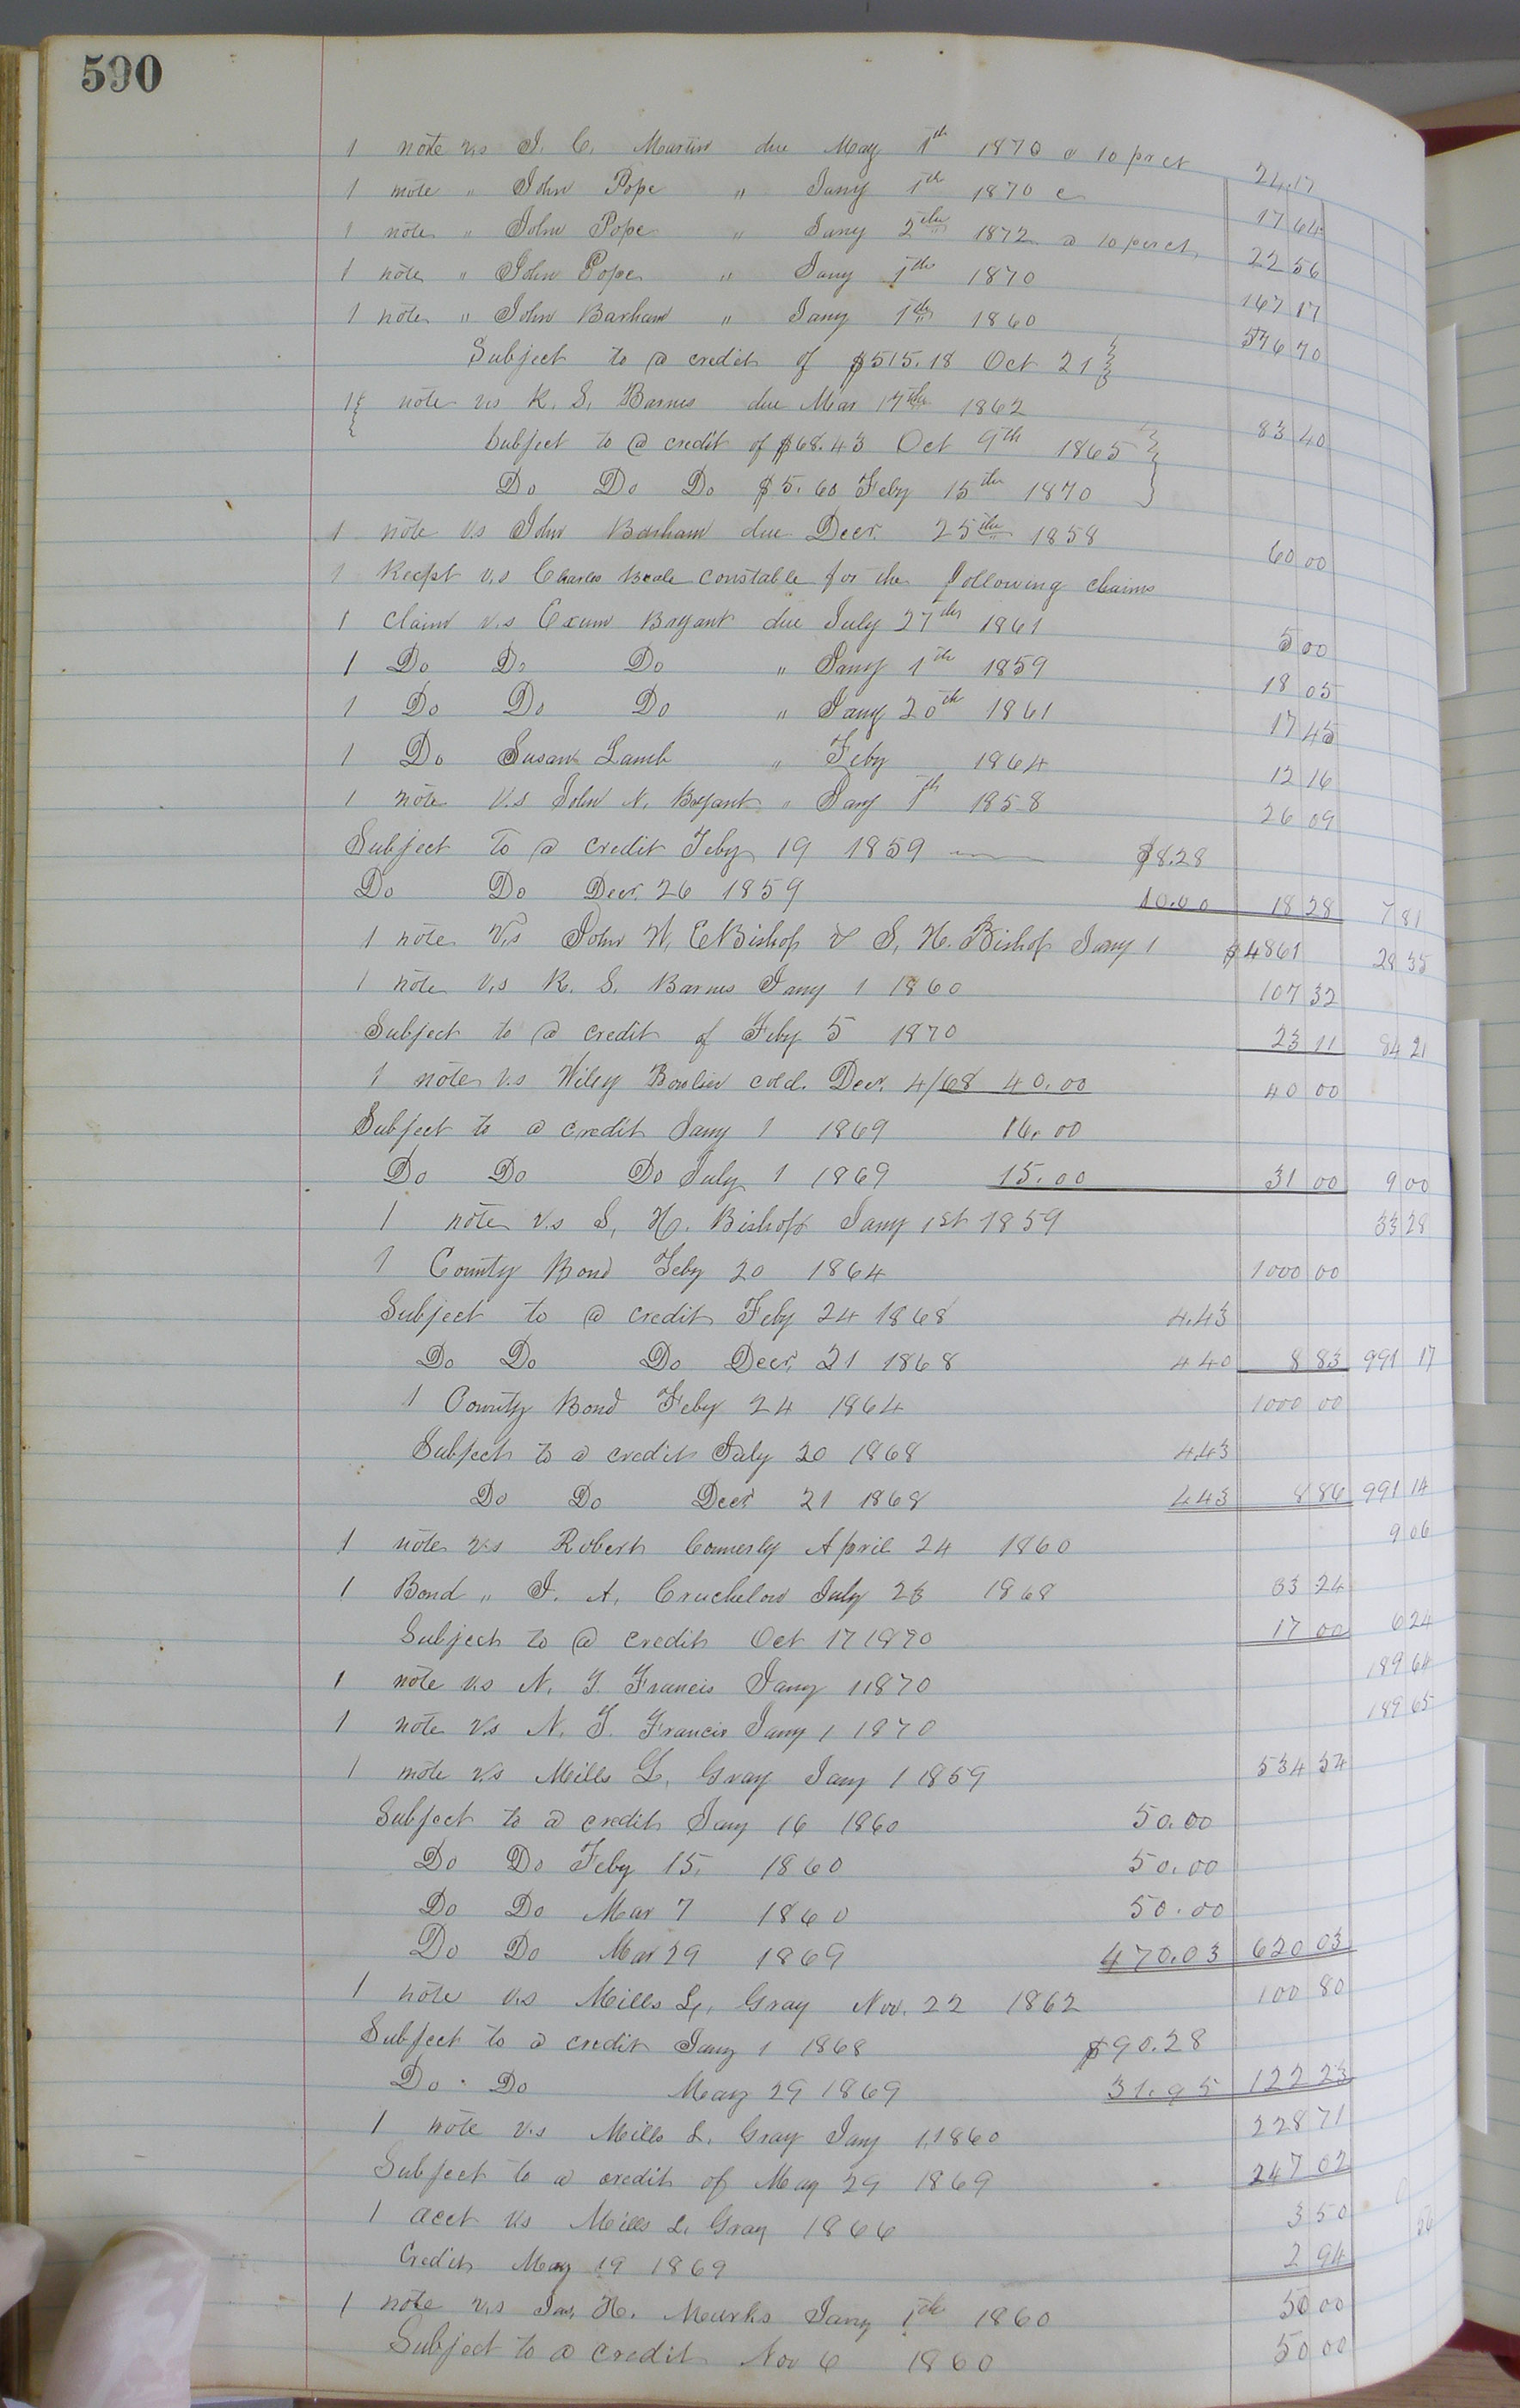 590
1 note vs J. C. Martin due May 1th 1870 @ 10 pr ct 24.17
1 note " John Pope " Jany 1th 1870 @ 17 64
1 note " John Pope " Jany 2th 1872 @ 10 per ct 22 56
1 note " John Pope " Jany 1th 1870 167 17
1 note " John Barham " Jany 1th 1860 576 70
Subject to @ credit of $515.18 Oct 21
1 note vs R. S. Barnes due Mar 17th 1862 83 40
Subject to @ credit of $68.43 Oct 9th 1865
Do Do Do $5.60 Feby 15th 1870
1 note vs John Barham due Decr. 25th 1858 60 00
1 Recpt vs Charles Beale constable for the following claims
1 Claim vs Exum Bryant due July 27th 1861 5 00
1 Do Do Do " Jany 1th 1859 18 05
1 Do Do Do " Jany 20th 1861 17 45
1 Do Susan Lamb " Feby 1864 12 16
1 note vs John N. Bryant " Jany 1th 1858 26 09
Subject To @ credit Feby 19 1859 $8.28
Do Do Decr. 26 1859 10.00 18 28 7 81
1 note Vs John W. E Bishop & S. H. Bishop Jany 1 $4861 28 35
1 note vs R. S. Barnes Jany 1 1860 107 32
Subject to @ credit of Feby 5 1870 23 11 84 21
1 note vs Wiley Bowlin cold. Decr. 4/68 40.00 40 00
Subject to @ credit Jany 1 1869 16.00
Do Do Do July 1 1869 15.00 31 00 9 00
1 note vs S. H. Bishop Jany 1st 1859 33 28
1 County Bond Feby 20 1864 1000 00
Subject to @ credit Feby 24 1868 4.43
Do Do Do Decr. 21 1868 4 40 8 83 991 17
1 County Bond Feby 24 1864 1000 00
Subject to @ credit July 20 1868 4.43
Do Do Decr 21 1868 4.43 8 86 991 14
1 note vs Robert Connerly April 24 1860 9 06
1 Bond " J. A. July 23 1868 33 24
Subject to @ credit Oct 17 1870 17 00 6 24
1 note vs N. T. Francis Jany 1 1870 189 64
1 note vs N. T. Francis Jany 1 1870 189 65
1 note vs Mills L. Gray Jany 1 1859 534 54
Subject to @ credit Jany 16 1860 50.00
Do Do Feby 15. 1860 50.00
Do Do Mar 7 1860 50.00
Do Do Mar 29 1869 470.03 620 03
1 note vs Mills L. Gray Nov. 22 1862 100 80
Subject to @ credit Jany 1 1868 $90.28
Do Do May 29 1869 31.95 122 23
1 note vs Mills L. Gray Jany 1, 1860 228 71
Subject to @ credit of May 29 1869 247 02
1 acct vs Mills L. Gray 1866 3 50
Credit May 19 1869 2 94
1 note vs Jas. H. Marks Jany 1th 1860 50 00
Subject to @ credit Nov 6 1860 50 00